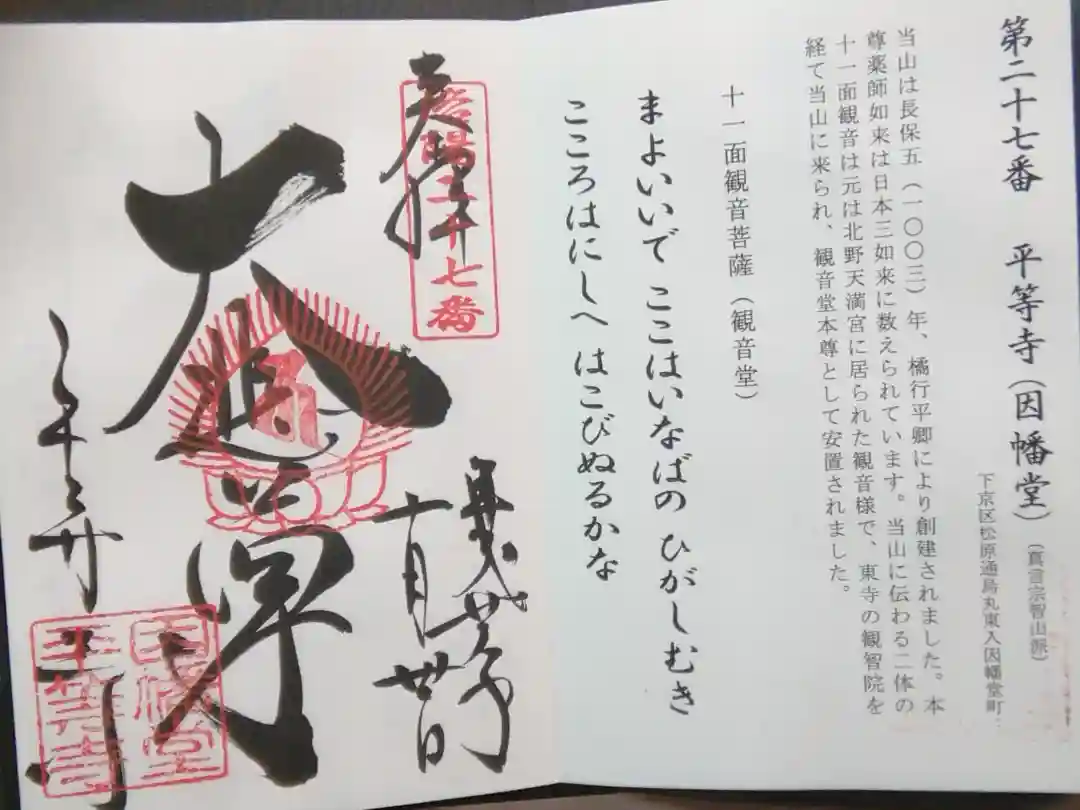 第二十七番 平等寺(因幡堂)(真言宗智山派)
下京区松原通烏丸東入因幡堂町
当山は長保五(一〇〇三)年、橘行平卿により創建されました。本
尊薬師如来は日本三如来に数えられています。当山に伝わる二体の
十一面観音は元は北野天満宮に居られた観音様で、東寺の観智院を
経て当山に来られ、観音堂本尊として安置されました。
十一面観音菩薩(観音堂)
まよいいで ここはいなばの ひがしむき
こころはにしへ はこびぬるかな
奉拝
洛陽二十七番
十月廿日
大悲殿
平等寺
因幡堂
平等寺